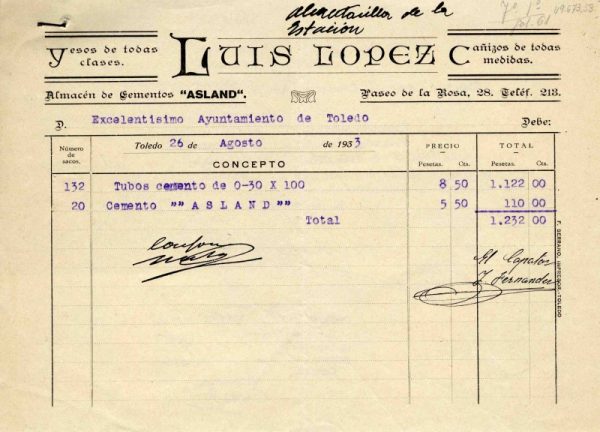 Alcantarilla de la
Estación
7º 1º
fol. 61
Yesos de todas
clases.
LUIS LOPEZ
Cañizos de todas
medidas.
Almacén de Cementos "ASLAND".
Paseo de la Rosa, 28. Teléf. 213.
D. Excelentisimo Ayuntamiento de Toledo Debe:
Número de sacos.
Toledo 26 de Agosto de 1933
CONCEPTO
PRECIO
Pesetas. Cts.
TOTAL
Pesetas. Cts.
132 Tubos cemento de 0-30 X 100 8 50 1.122 00
20 Cemento "" A S L A N D "" 5 50 110 00
Total 1.232 00
El Capataz
J. Fernandez
F. SERRANO, IMPRESOR, TOLEDO